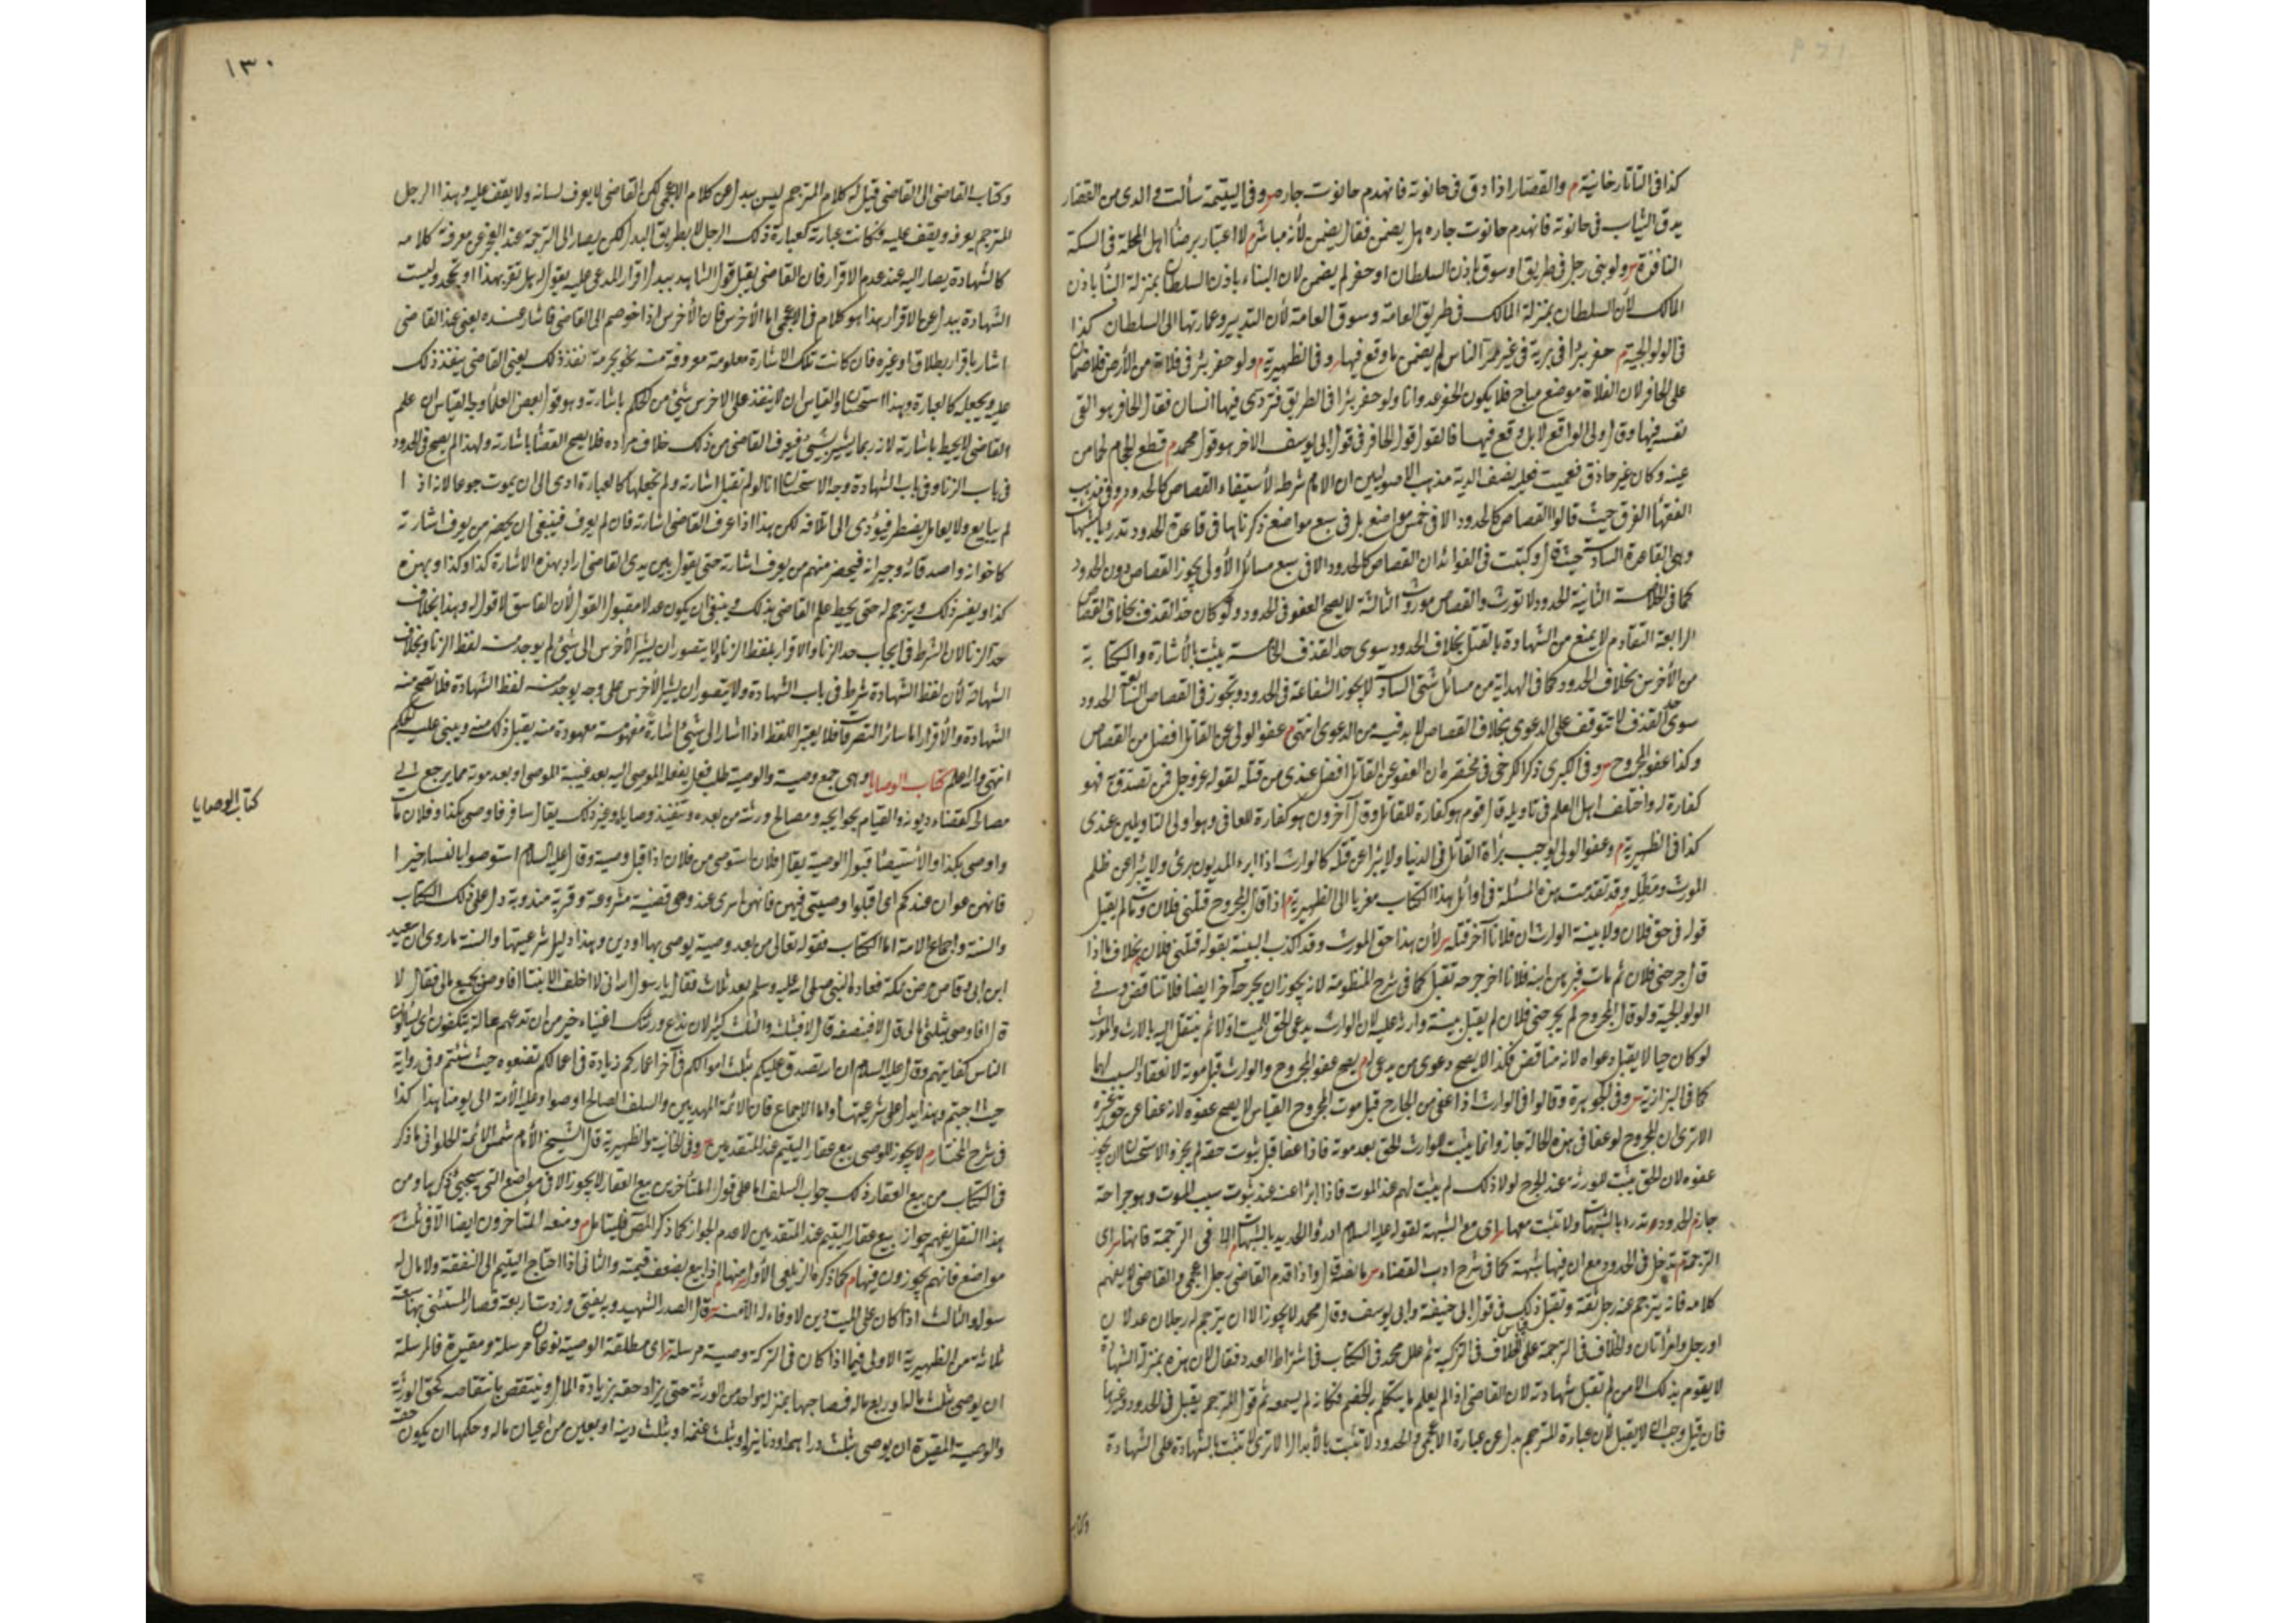 كذا فى التاتارخانية م والقصار اذا دق فى حانوته فانهدم حانوت جاره س وفى اليتيمة سألت والدى من القصار
يدق الثياب فى حانوته فانهدم حانوت جاره هل يضمن فقال يضمن لأنه مباشر م لا اعتبار برضأ اهل المحلة فى السكة
النافذة س ولو بنى رجل فى طريق او سوق بإذن السلطان او حفر لم يضمن لان البناء باذن السلطان بمنزلة البنأ باذن
المالك لأن السلطان بمنزلة المالك فى طريق العامة وسوق العامة لأن التدبير وعمارتها الى السلطان كذا
فى الولوالجية م حفر بئرا فى برية فى غير ممر الناس لم يضمن ما وقع فيها س وفى الظهيرية م ولو حفر بئر فى فلاة من الأرض فلا ضمان
على الحافر لان الفلاة موضع مباح فلا يكون الحفر عدوانا ولو حفر بئرا فى الطريق فتردى فيها انسان فقال الحافر هو القى
نفسه فيها وقال ولى الواقع لا بل وقع فيها فالقول قول الحافر فى قول ابى يوسف الاخر هو قول محمد م قطع الحجام لحما من
عينه وكان غير حاذق فعميت فعليه نصف الدية مذهب الاصوليين ان الامام شرط لأستيفاء القصاص كالحدود وفى مذهب
الفقهأ الفرق حيث قالوا القصاص كالحدود الا فى خمس مواضع بل فى سبع مواضع ذكرناها فى قاعدة الحدود تدرء بالشبهات
وهى القاعدة السادسة حيث قال وكتبت فى الفوائد ان القصاص كالحدود الا فى سبع مسائل الأولى يجوز القصاص دون الحدود
كما فى الخلاصة الثانية الحدود لا تورث والقصاص موروث الثالثة لا يصح العفو فى الحدود ولو كان حد القذف بخلاف القصاص
الرابعة التقادم لا يمنع من الشهادة بالقتل بخلاف الحدود سوى حد القذف الخامسة يثبت بالأشارة والكتابة
من الأخرس بخلاف الحدود كما فى الهداية من مسائل شتى السادسة لا يجوز الشفاعة فى الحدود وتجوز فى القصاص السابعة الحدود
سوى حد القذف لا تتوقف على الدعوى بخلاف القصاص لا بد فيه من الدعوى انتهى م عفو الولى عن القاتل افضل من القصاص
وكذا عفو المجروح س وفى الكبرى ذكر الكرخى فى مختصره ان العفو عن القاتل افضل عندى من قتله لقوله عز وجل فمن تصدق به فهو
كفارة له واختلف اهل العلم فى تاويله قال قوم هو كفارة للقاتل وقال آخرون هو كفارة للعافى وهو اولى التاويلين عندى
كذا فى الظهيرية م وعفو الولى يوجب برأة القاتل فى الدنيا ولا يبرأ عن قتله كالوارث اذا ابرء المديون برئ ولا يبرأ عن ظلم
المورث ومطله س وقد تقدمت هذه المسئلة فى اوائل هذا الكتاب معزيا الى الظهيرية م اذا قال المجروح قتلنى فلان ومات لم يقبل
قوله فى حق فلان ولا بينة الوارث ان فلانا آخر قتله س لأن هذا حق المورث وقد اكذب البينة بقوله قتلنى فلان م بخلاف ما اذا
قال جرحنى فلان ثم مات فبرهن ابنه فلانا اخر جرحه تقبل كما فى شرح المنظومة لانه يجوز ان يجرحه آخر ايضا فلا تناقض وفى
الولوالجية ولو قال المجروح لم يجرحنى فلان لم يقبل بينة وارثه عليه لان الوارث يدعى الحق للميت اولا ثم ينتقل اليه بالارث والمورث
لو كان حيا لا يقبل دعواه لانه مناقض فكذا لا يصح دعوى من يدعى له م يصح عفو المجروح والوارث قبل موته لانعقاد السبب لهما
كما فى البزازية س وفى الجوهرة وقالوا فى الوارث اذا عفى من الجارح قبل موت المجروح القياس لا يصح عفوه لانه عفا عن حق غيره
الا ترى ان المجروح لو عفا فى هذه الحالة جاز وانما يثبت للوارث الحق بعد موته فاذا عفا قبل ثبوت حقه لم يجز والاستحسان ان يجوز
عفوه لان الحق يثبت للورثة عند الجرح لولا ذلك لم يثبت لهم عند الموت فاذا ابرأ عنه عند ثبوت سبب الموت وهو جراحة
جاز م الحدود تدرء بالشبهات ولا تثبت معها س اى مع الشبهة لقوله عليه السلام ادرؤا الحدود بالشبهات م الا فى الترجمة فانها س اى
الترجمة م تدخل فى الحدود مع ان فيها شبهة كما فى شرح ادب القضاء س بالفتح قال واذا قدم القاضى رجل اعجمى والقاضى لا يفهم
كلامه فانه يترجم عنه رجل ثقة وتقبل ذلك فى قول ابى حنيفة وابى يوسف وقال محمد لا يجوز الا ان يترجم له رجلان عدلان
او رجل وامرأتان والخلاف فى الترجمة على قياس الخلاف فى التزكية ثم علل محمد فى الكتاب فى اشتراط العدد فقال لان هذه بمنزلة الشهادة
لا يقوم بذلك الا من تقبل شهادته لان القاضى اذا لم يعلم ما يتكلم به الخصم فكانه لم يسمعه ثم قول المترجم يقبل فى الحدود وغيرها
فان قيل وجب ان لا يقبل لأن عبارة المترجم بدل عن عبارة الاعجمى والحدود لا تثبت بالأبدال الا ترى لا تثبت بالشهادة على الشهادة
وكتاب
١٣٠
وكتاب القاضى الى القاضى قيل له كلام المترجم ليس ببدل عن كلام الاعجمى لكن القاضى لا يعرف لسانه ولا يقف عليه وهذا الرجل
المترجم يعرفه ويقف عليه فكانت عبارته كعبارة ذلك الرجل لا بطريق البدل لكن يصار الى الترجمة عند العجز عن معرفة كلامه
كالشهادة يصار اليه عند عدم الاقرار فان القاضى يقبل قول الشاهد ببدل اقرار المدعى عليه يقول له هل تقر بهذا او تجحد وليست
الشهادة ببدل عن الاقرار هذا هو كلام فى الاعجمى اما الأخرس فان الأخرس اذا خوصم الى القاضى فاشار عنده يعنى عند القاضى
اشار باقرار بطلاق او غيره فان كانت تلك الاشارة معلومة معروفة منه نفذ ذلك يعنى القاضى ينفذ ذلك
عليه ويجعله كالعبارة وهذا استحسان والقياس ان لا ينفذ على الاخرس شيئ من الحكم باشارته وهو قول بعض العلمأ وجه القياس ان علم
القاضى لا يحيط باشارته لانه ربما يشير بشيئ فيعرف القاضى من ذلك خلاف مراده فلا يصح القضأ باشارته ولهذا لم يصح فى الحدود
فى باب الزنا وفى باب الشهادة وجه الاستحسان انا لو لم نقبل اشارته ولم نجعلها كالعبارة ادى الى ان يموت جوعا لانه اذا
لم يبايع ولا يعامل يضطر فيؤدى الى اتلافه لكن هذا اذا عرف القاضى اشارته فان لم يعرف فينبغى ان يحضر من يعرف اشارته
كاخوانه واصدقائه وجيرانه فيحضر منهم من يعرف اشارته حتى يقول بين يدى القاضى اراد بهذه الاشارة كذا وكذا وبهذه
كذا ويفسر ذلك ويترجم له حتى يحيط علم القاضى بذلك وينبغى ان يكون عدلا مقبول القول لأن الفاسق لا قول له وهذا بخلاف
حد الزنا لان الشرط فى ايجاب حد الزنا والاقرار بلفظ الزنا ولا يتصور ان يشير الأخرس الى شيئ لم يوجد منه لفظ الزنا وبخلاف
الشهادة لأن لفظ الشهادة شرط فى باب الشهادة ولا يتصور ان يشير الأخرس على وجه يوجد منه لفظ الشهادة فلا تصح منه
الشهادة والأقرار اما سائر التصرفات فلا يعتبر اللفظ اذا اشار الى شيئ اشارة مفهومة معهودة منه يقبل ذلك منه ويبنى عليه الحكم
انتهى والله اعلم كتاب الوصايا وهى جمع وصية والوصية طلب فعل يفعله الموصى اليه بعد غيبة الموصى او بعد موته مما يرجع الى
كتاب الوصايا
مصالحه كقضاء ديونه والقيام بحوايجه ومصالح ورثته من بعده وتنفيذ وصاياه وغير ذلك يقال سافر فاوصى بكذا وفلان مات
واوصى بكذا والأستيصأ قبول الوصية يقال فلان استوصى من فلان اذا قبل وصيته وقال عليه السلام استوصوا بالنساء خيرا
فانهن عوان عندكم اى اقبلوا وصيتى فيهن فانهن اسرى عندكم وهى قضية مشروعة وقربة مندوبة دل على ذلك الكتاب
والسنة واجماع الامة اما الكتاب فقوله تعالى من بعد وصية يوصى بها او دين وهذا دليل شرعيتها والسنة ما روى ان سعيد
ابن ابى وقاص مرض بمكة فعاده النبى صلى الله عليه وسلم بعد ثلاث فقال يا رسول الله انى لا اخلف الا بنتا افاوصى بجميع مالى فقال لا
قال افاوصى بثلثى مالى قال لا فبنصفه قال لا فبثلثه والثلث كثير لان تدع ورثتك اغنياء خير من ان تدعهم عالة يتكففون اى يسألون
الناس كفايتهم وقال عليه السلام ان الله تصدق عليكم بثلث اموالكم فى آخر اعماركم زيادة فى اعمالكم تضعوه حيث شئتم وفى رواية
حيث احببتم وبهذا يدل على شرعيتها واما الاجماع فان الائمة المهديين والسلف الصالح اوصوا وعليه الأمة الى يومنا هذا كذا
فى شرح المختار م لا يجوز للوصى بيع عقار اليتيم عند المتقدمين س وفى الخانية والظهيرية قال الشيخ الأمام شمس الائمة الحلوانى ما ذكر
فى الكتاب من بيع العقار ذلك جواب السلف اما على قول المتأخرين بيع العقار لا يجوز الا فى مواضع التى سيجئ ذكرها ومن
هذا النقل يفهم جواز بيع عقار اليتيم عند المتقدمين لا عدم الجواز كما ذكر المص فليتأمل م ومنعه المتاخرون ايضا الا فى ثلث س
مواضع فانهم يجوزون فيها م كما ذكره الزيلعى الأول س منها م اذا بيع بضعف قيمته والثانى اذا احتاج اليتيم الى النفقة ولا مال له
سواه والثالث اذا كان على الميت دين لا وفاء له الا منه س قال الصدر الشهيد وبه يفتى وزدت اربعة فصار المستثنى سبعة
ثلاثة من الظهيرية الاولى فيما اذا كان فى التركة وصية مرسلة س اى مطلقة الوصية نوعان مرسلة ومقيدة فالمرسلة
ان يوصى بثلث ماله او ربع ماله فصاحبها بمنزلة واحد من الورثة حتى يزاد حقه بزيادة المال وينتقص بانتقاصه كحق الورثة
والوصية المقيدة ان يوصى بثلث دراهمه او دنانيره او بثلث غنمه او بثلث دينه او بعين من اعيان ماله وحكمها ان يكون حقه